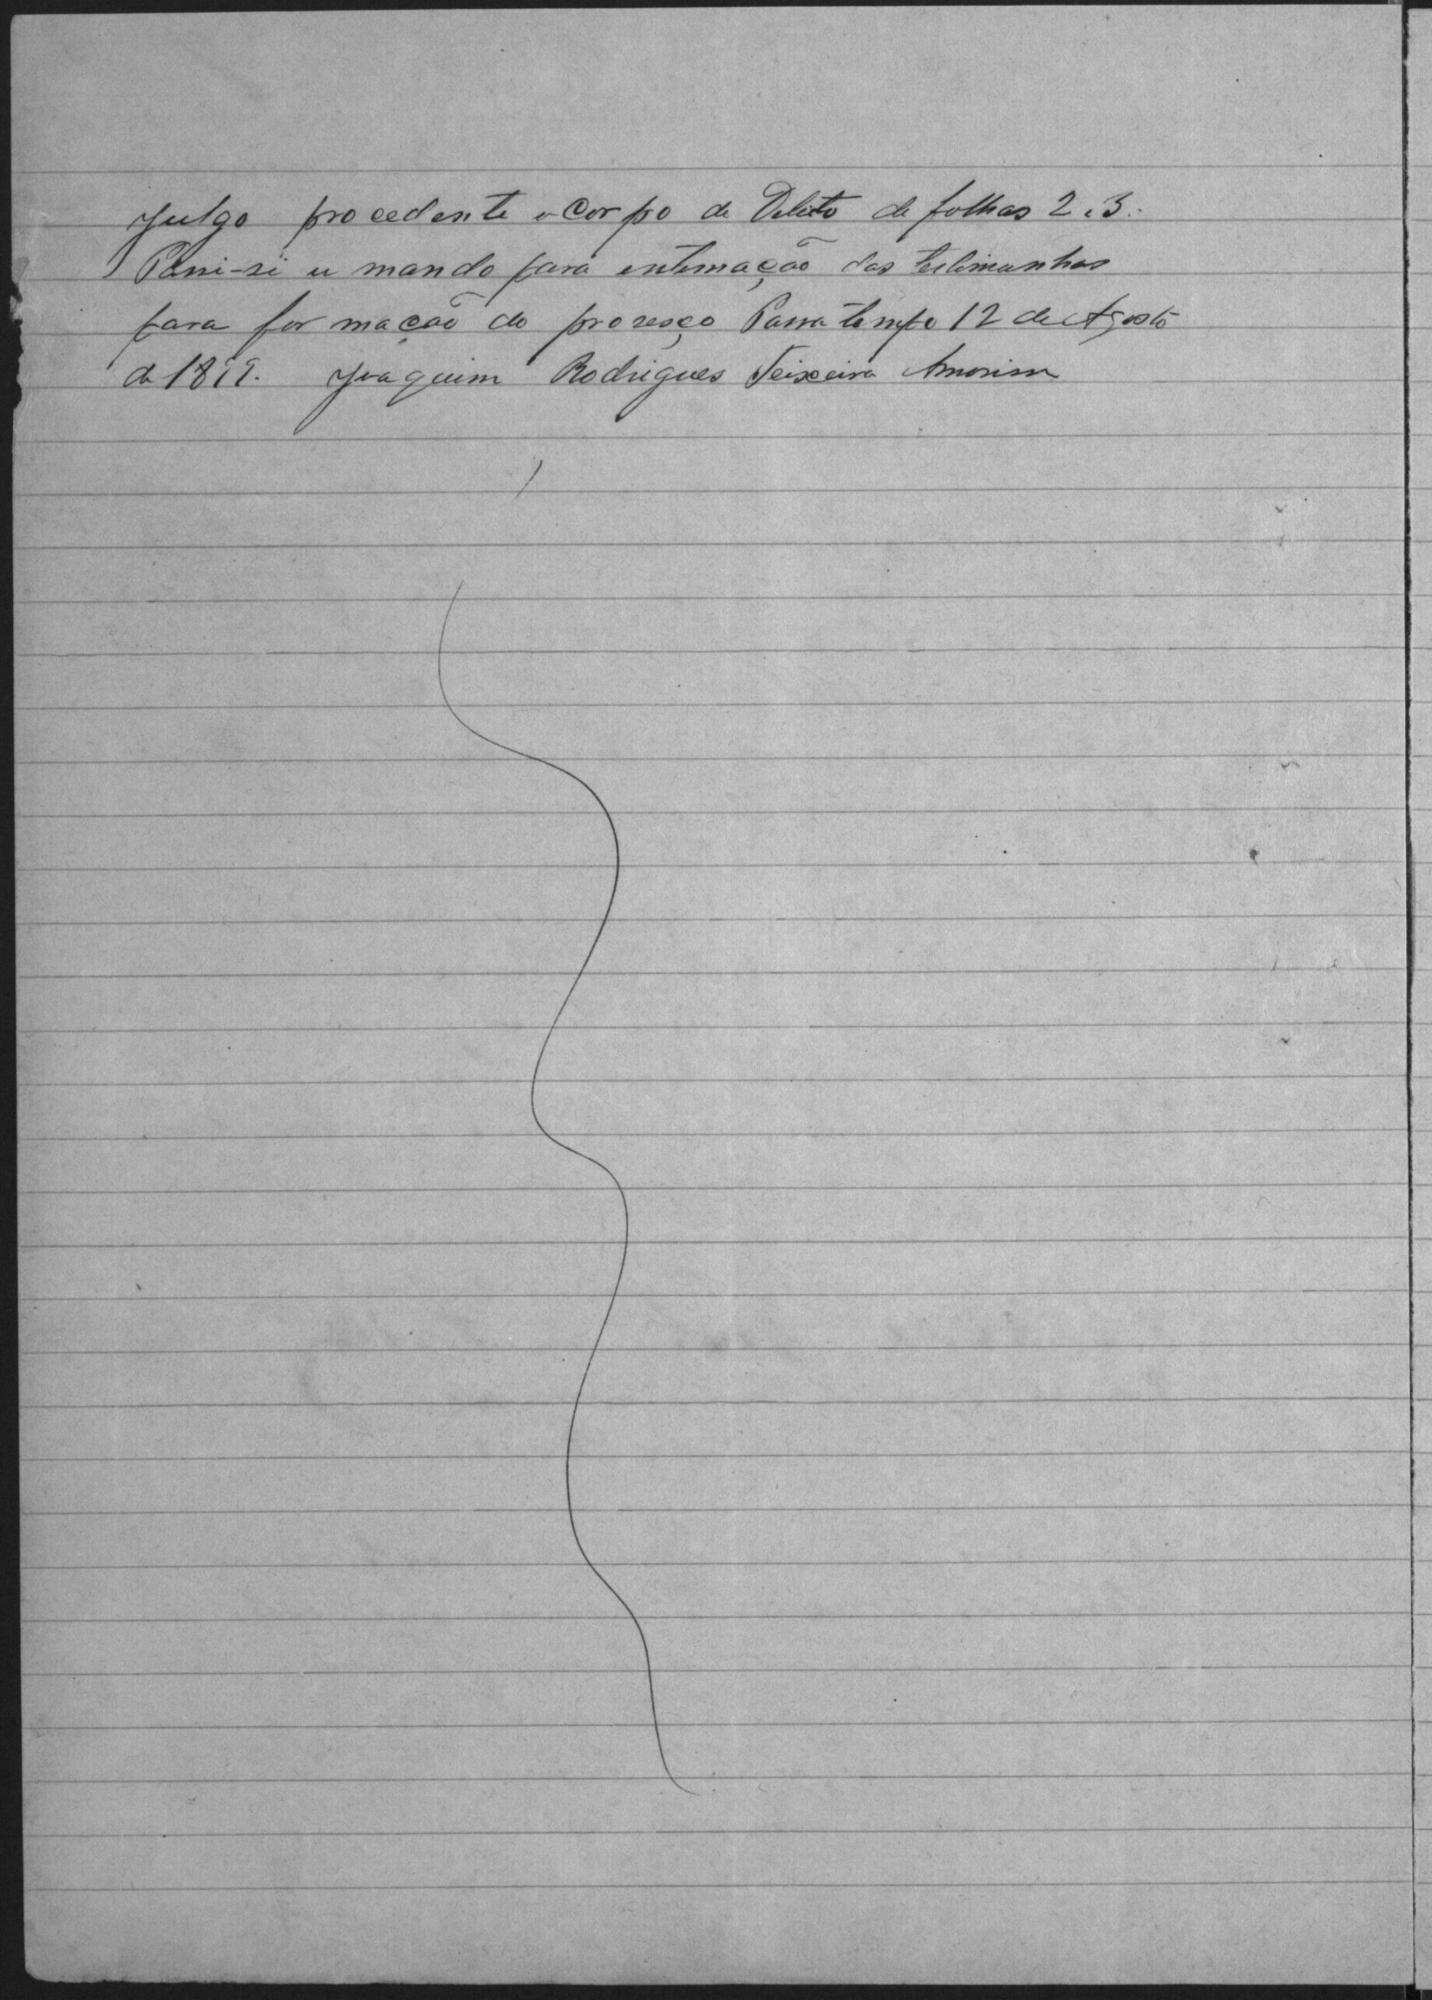 Julgo procedente o Corpo de Delito de folhas 2 e 3.
Passi-si u mando para entimação das testimunhas
para formação do prosesço Passa tempo 12 de Agosto
de Joaquim Rodrigues Teixeira Amorim